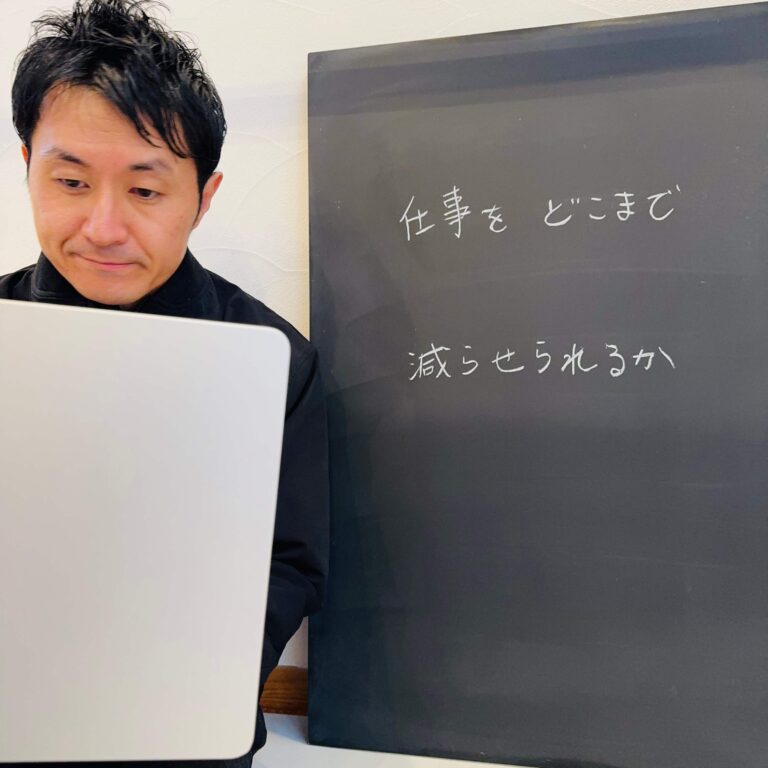 仕事を どこまで
減らせられるか